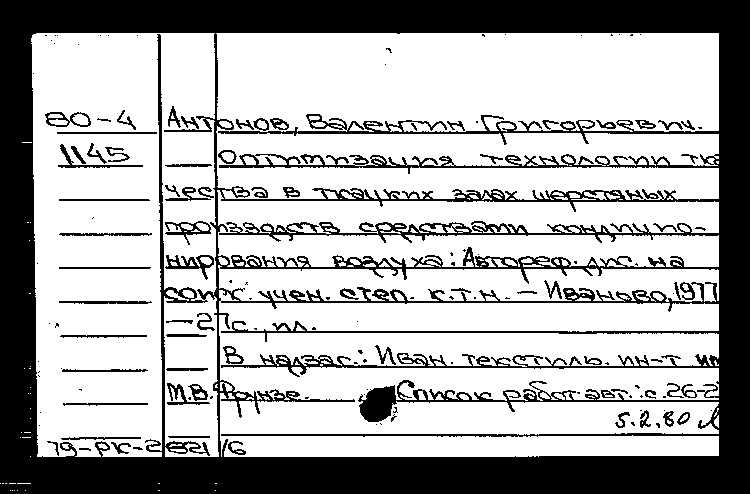 80-4 Антонов, Валентин Григорьевич.
1145 Оптимизация технологии тка
чества в ткацких залах шерстяных
производств средствами кондицио-
нирования воздуха: Автореф. дис. на
соиск. учен. степ. к.т.н. — Иваново, 1977
— 27с., ил.
В надзаг.: Иван. текстиль. ин-т им
М.В. Фрунзе. Список работ авт.: с. 26-2
5.2.80
79-РК-2821/6